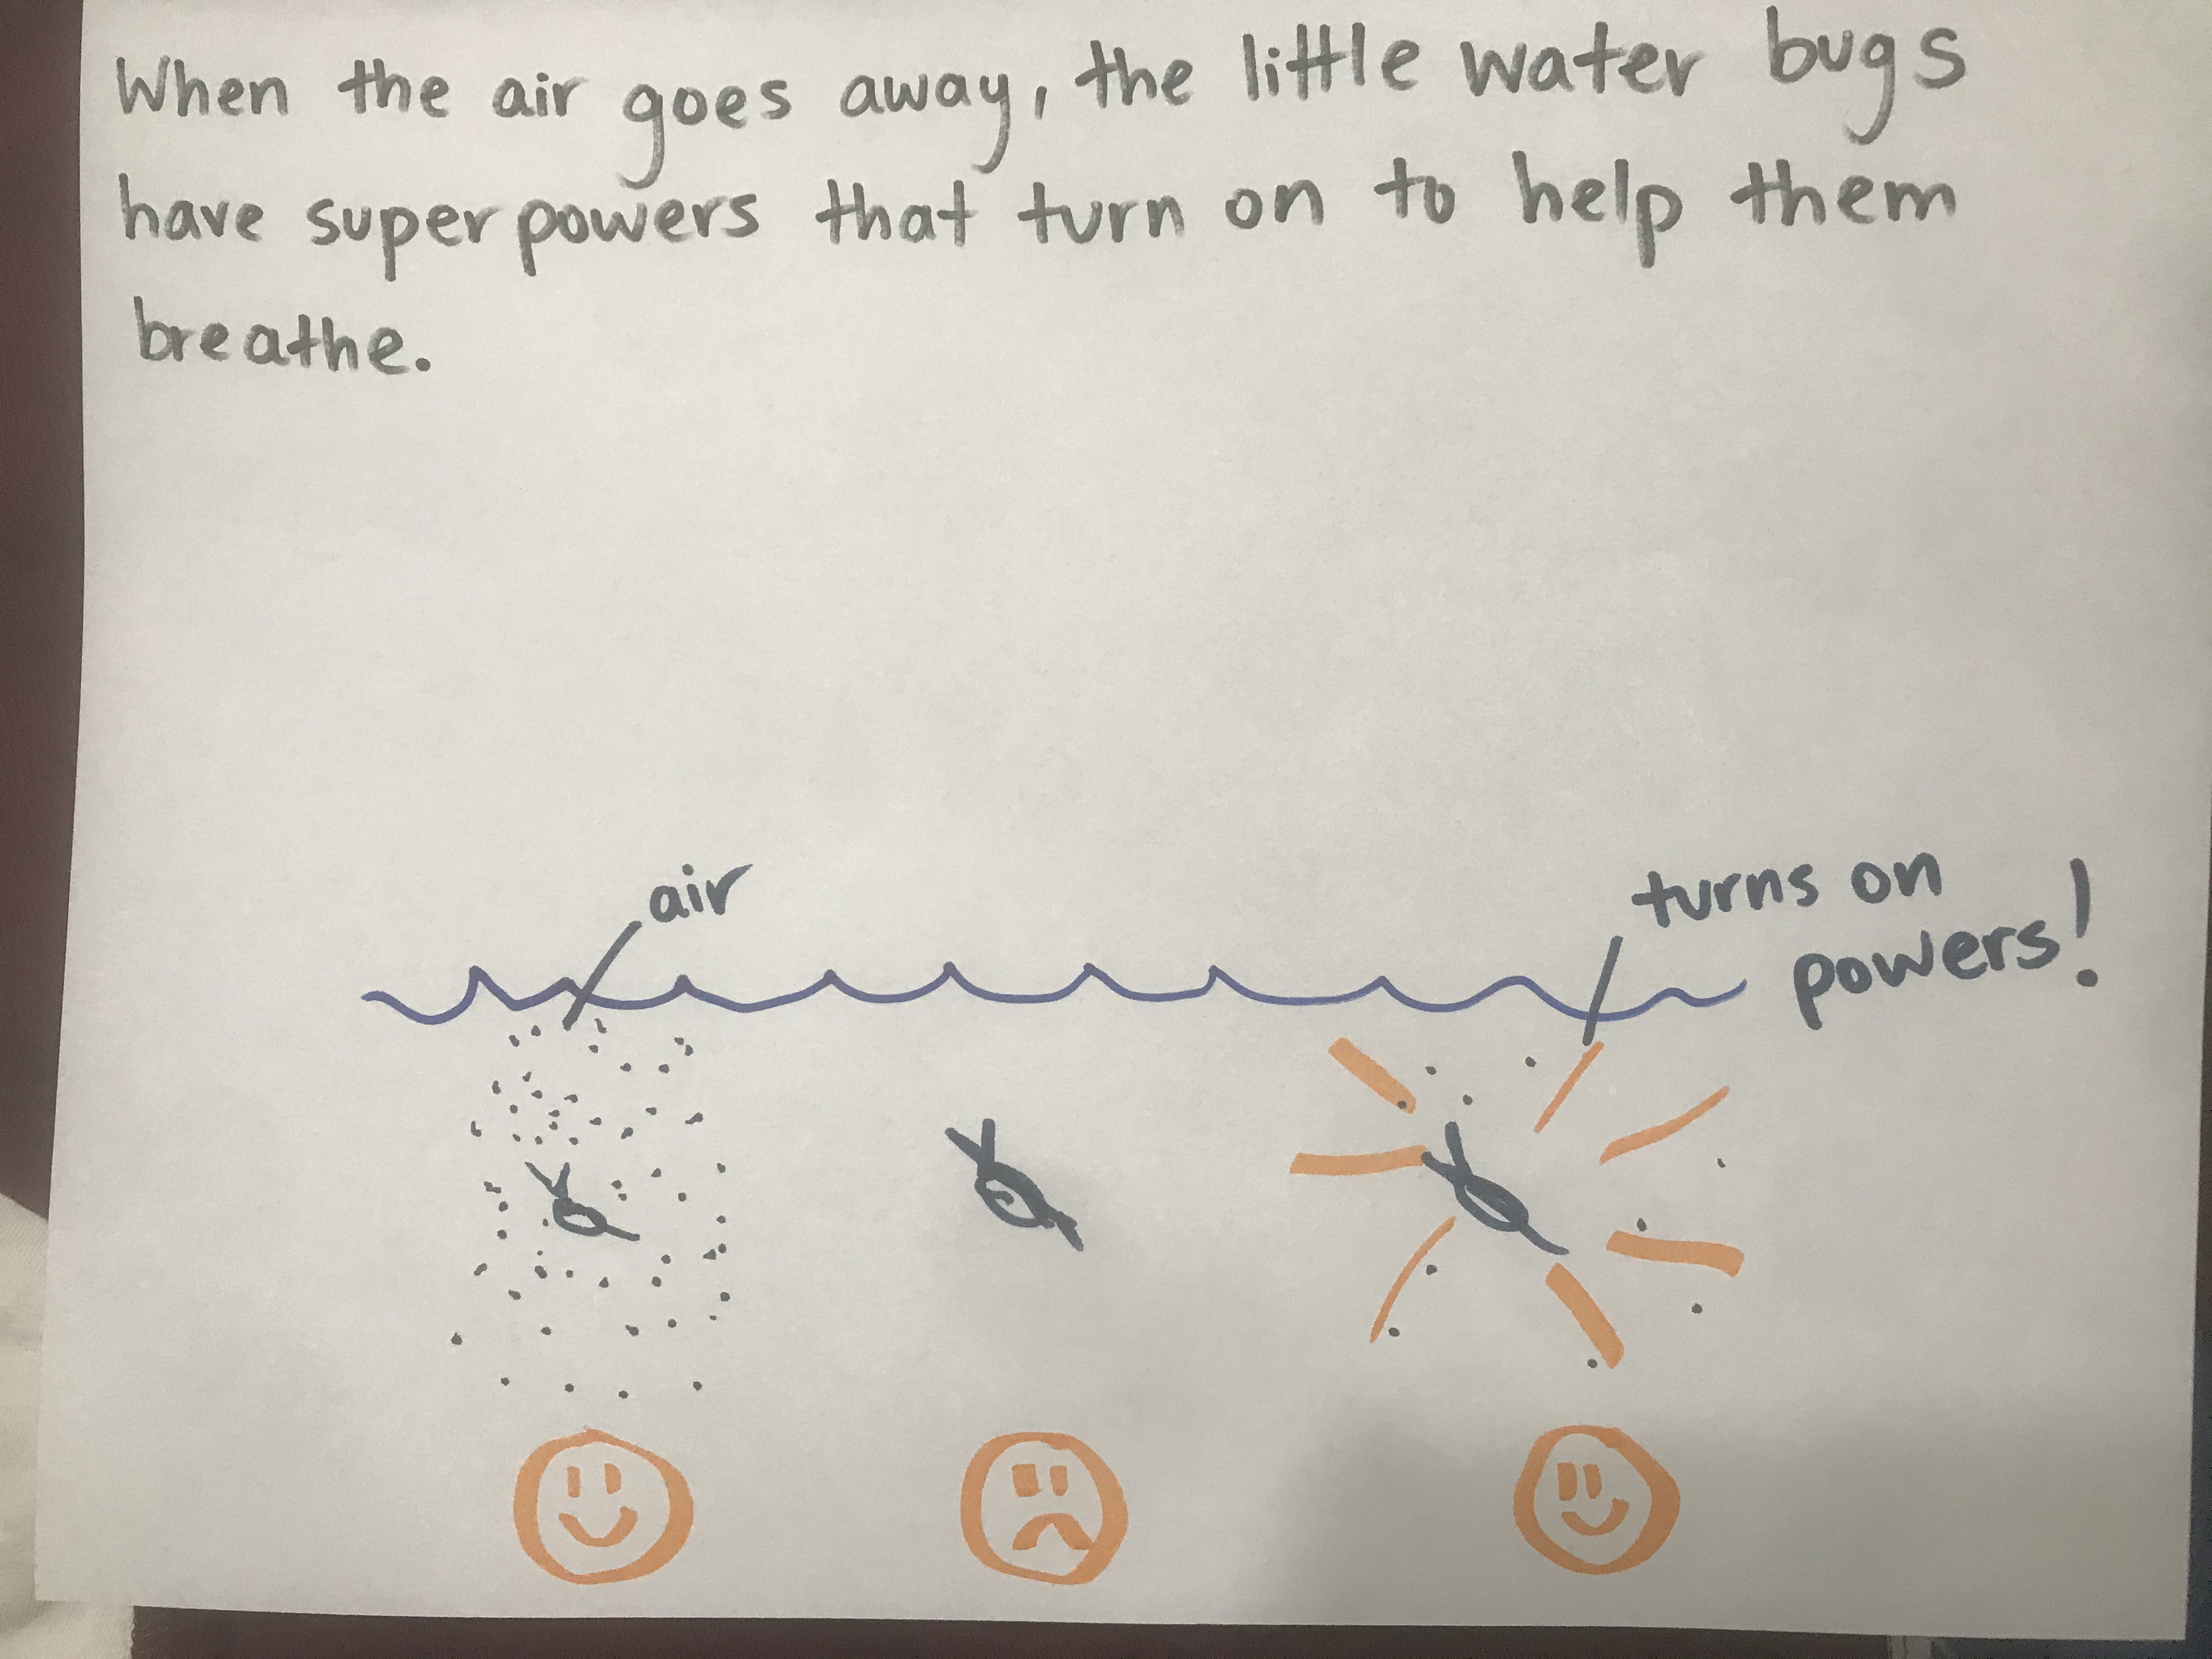 When the air goes away, the little water bugs
have superpowers that turn on to help them
breathe.
air
turns on
powers!